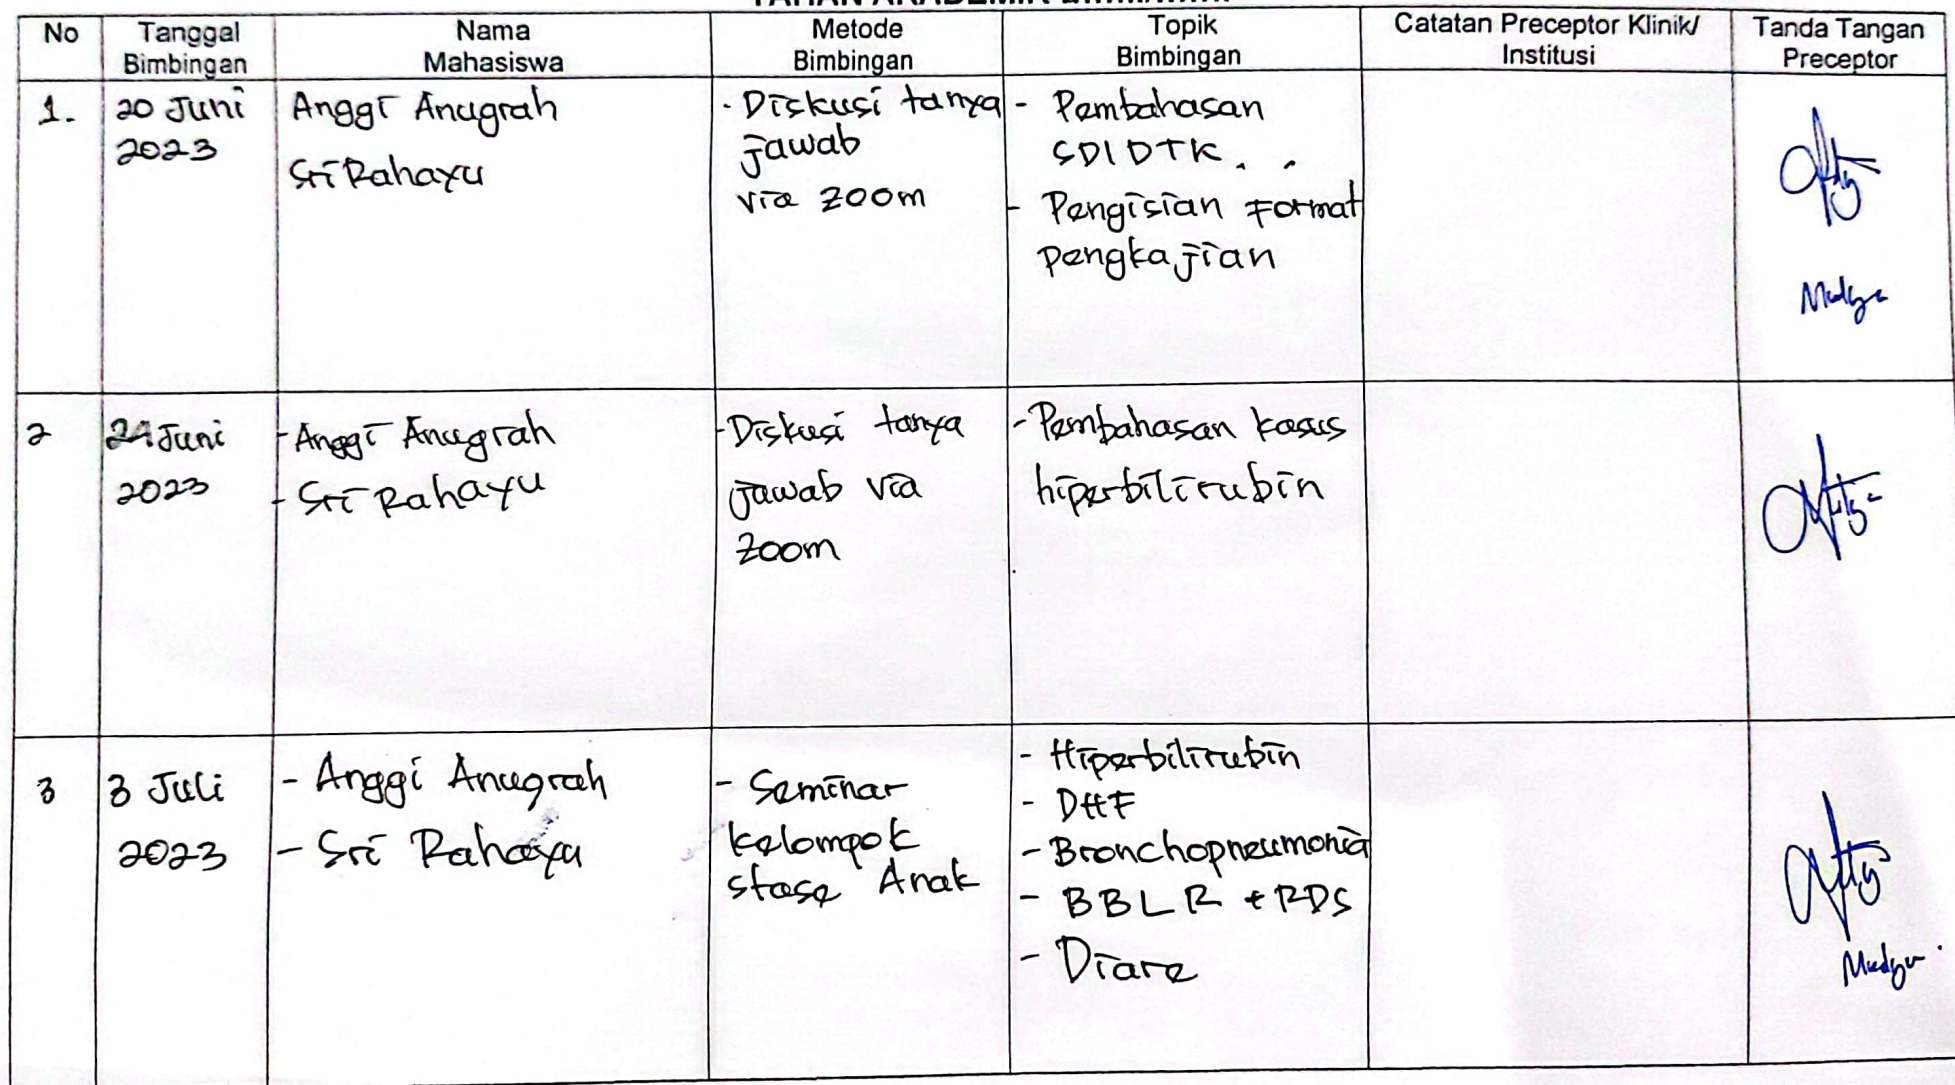 No
Tanggal
Bimbingan
Nama
Mahasiswa
Metode
Bimbingan
Topik
Bimbingan
Catatan Preceptor Klinik/
Institusi
Tanda Tangan
Preceptor
1.
20 Juni
2023
Anggi Anugrah
Sri Rahayu
- Diskusi tanya
jawab
via zoom
- Pembahasan
SDIDTK
- Pengisian Format
pengkajian
2
Juni
2023
- Anggi Anugrah
- Sri Rahayu
- Diskusi tanya
jawab via
zoom
- Pembahasan kasus
hiperbilirubin
3
3 Juli
2023
- Anggi Anugrah
- Sri Rahayu
- Seminar
kelompok
stase Anak
- Hiperbilirubin
- DHF
- Bronchopneumonia
- BBLR + RDS
- Diare